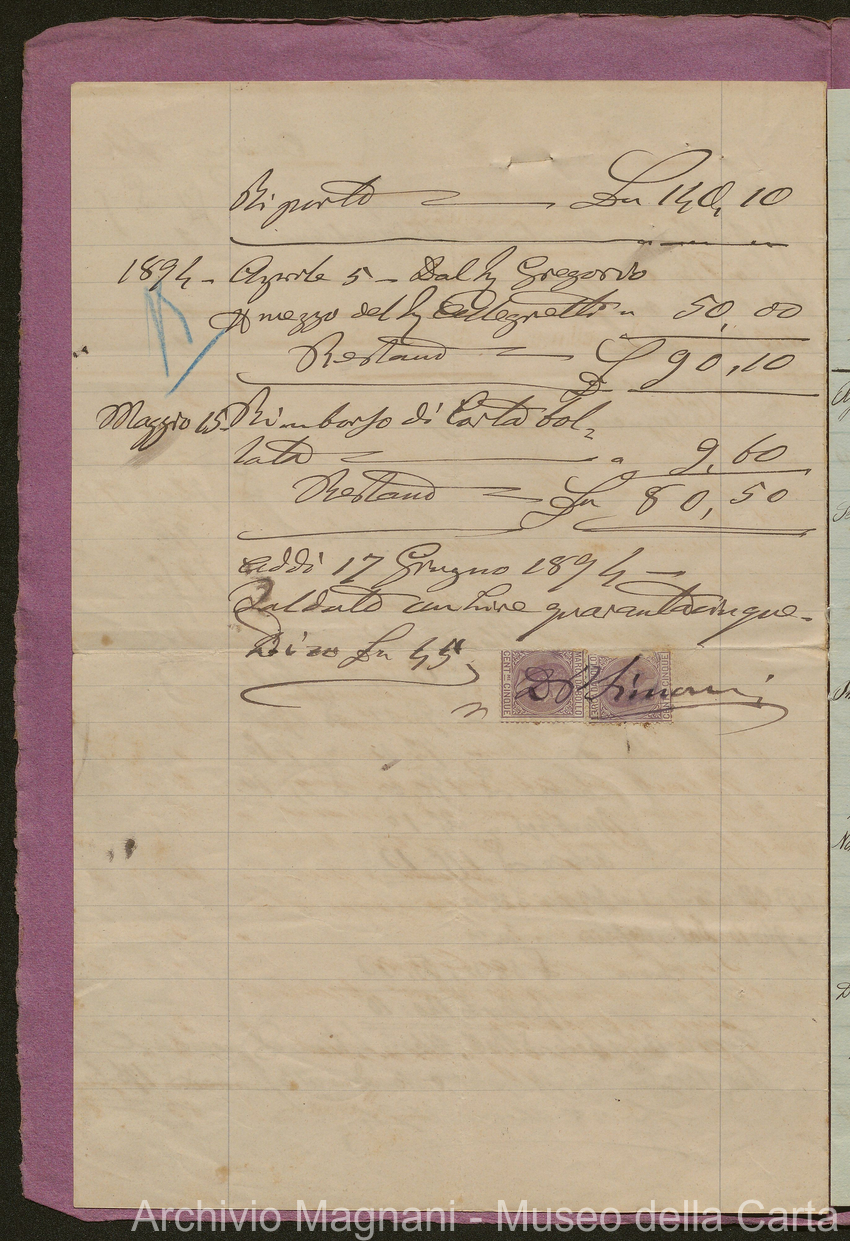 Riporto — Ln 140, 10
1894 - Aprile 5 - Dal Sig Gregorio
a mezzo del Sig Allegretti " 50, 00
Restano — L 90, 10
Maggio 15. Rimborso di Carta bol=
lata — " 9, 60
Restano — Ln 80, 50
Addì 17 Giugno 1894 —
Saldato con Lire quarantacinque -
Dico Ln 45
D P Simoni
CENT. CINQUE
MARCA DA BOLLO
CENT. CINQUE
Archivio Magnani - Museo della Carta